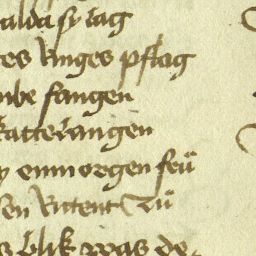 alda sy lag
es kinges pflag
nbe fangen
katterangen
y ein morgen frü
en Rittent zü
s blik was de